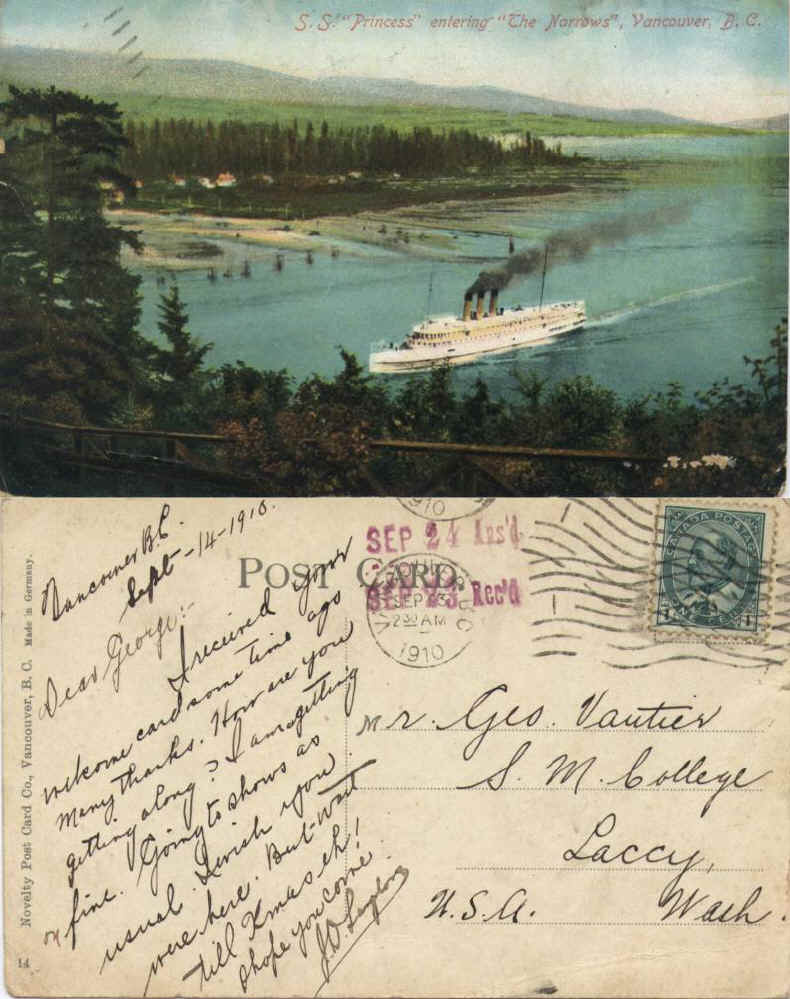 S. S. "Princess" entering "The Narrows", Vancouver, B. C.
Vancouver B.C.
Sept-14-1910.
Dear George:-
I received your
welcome card some time ago
many thanks. How are you
getting along? I am getting
on fine. Going to shows as
usual. I wish you
were here. But wait
till Xmas eh!
I hope you come.
J.D.
POST CARD.
SEP 24 Ans'd
SEP 23 Rec'd
SEP 23
2 30 AM
1910
1910
CANADA POSTAGE
Mr. Geo. Vautier
S. M. College
Laccy,
U.S.A. Wash.
Novelty Post Card Co., Vancouver, B. C. Made in Germany.
14